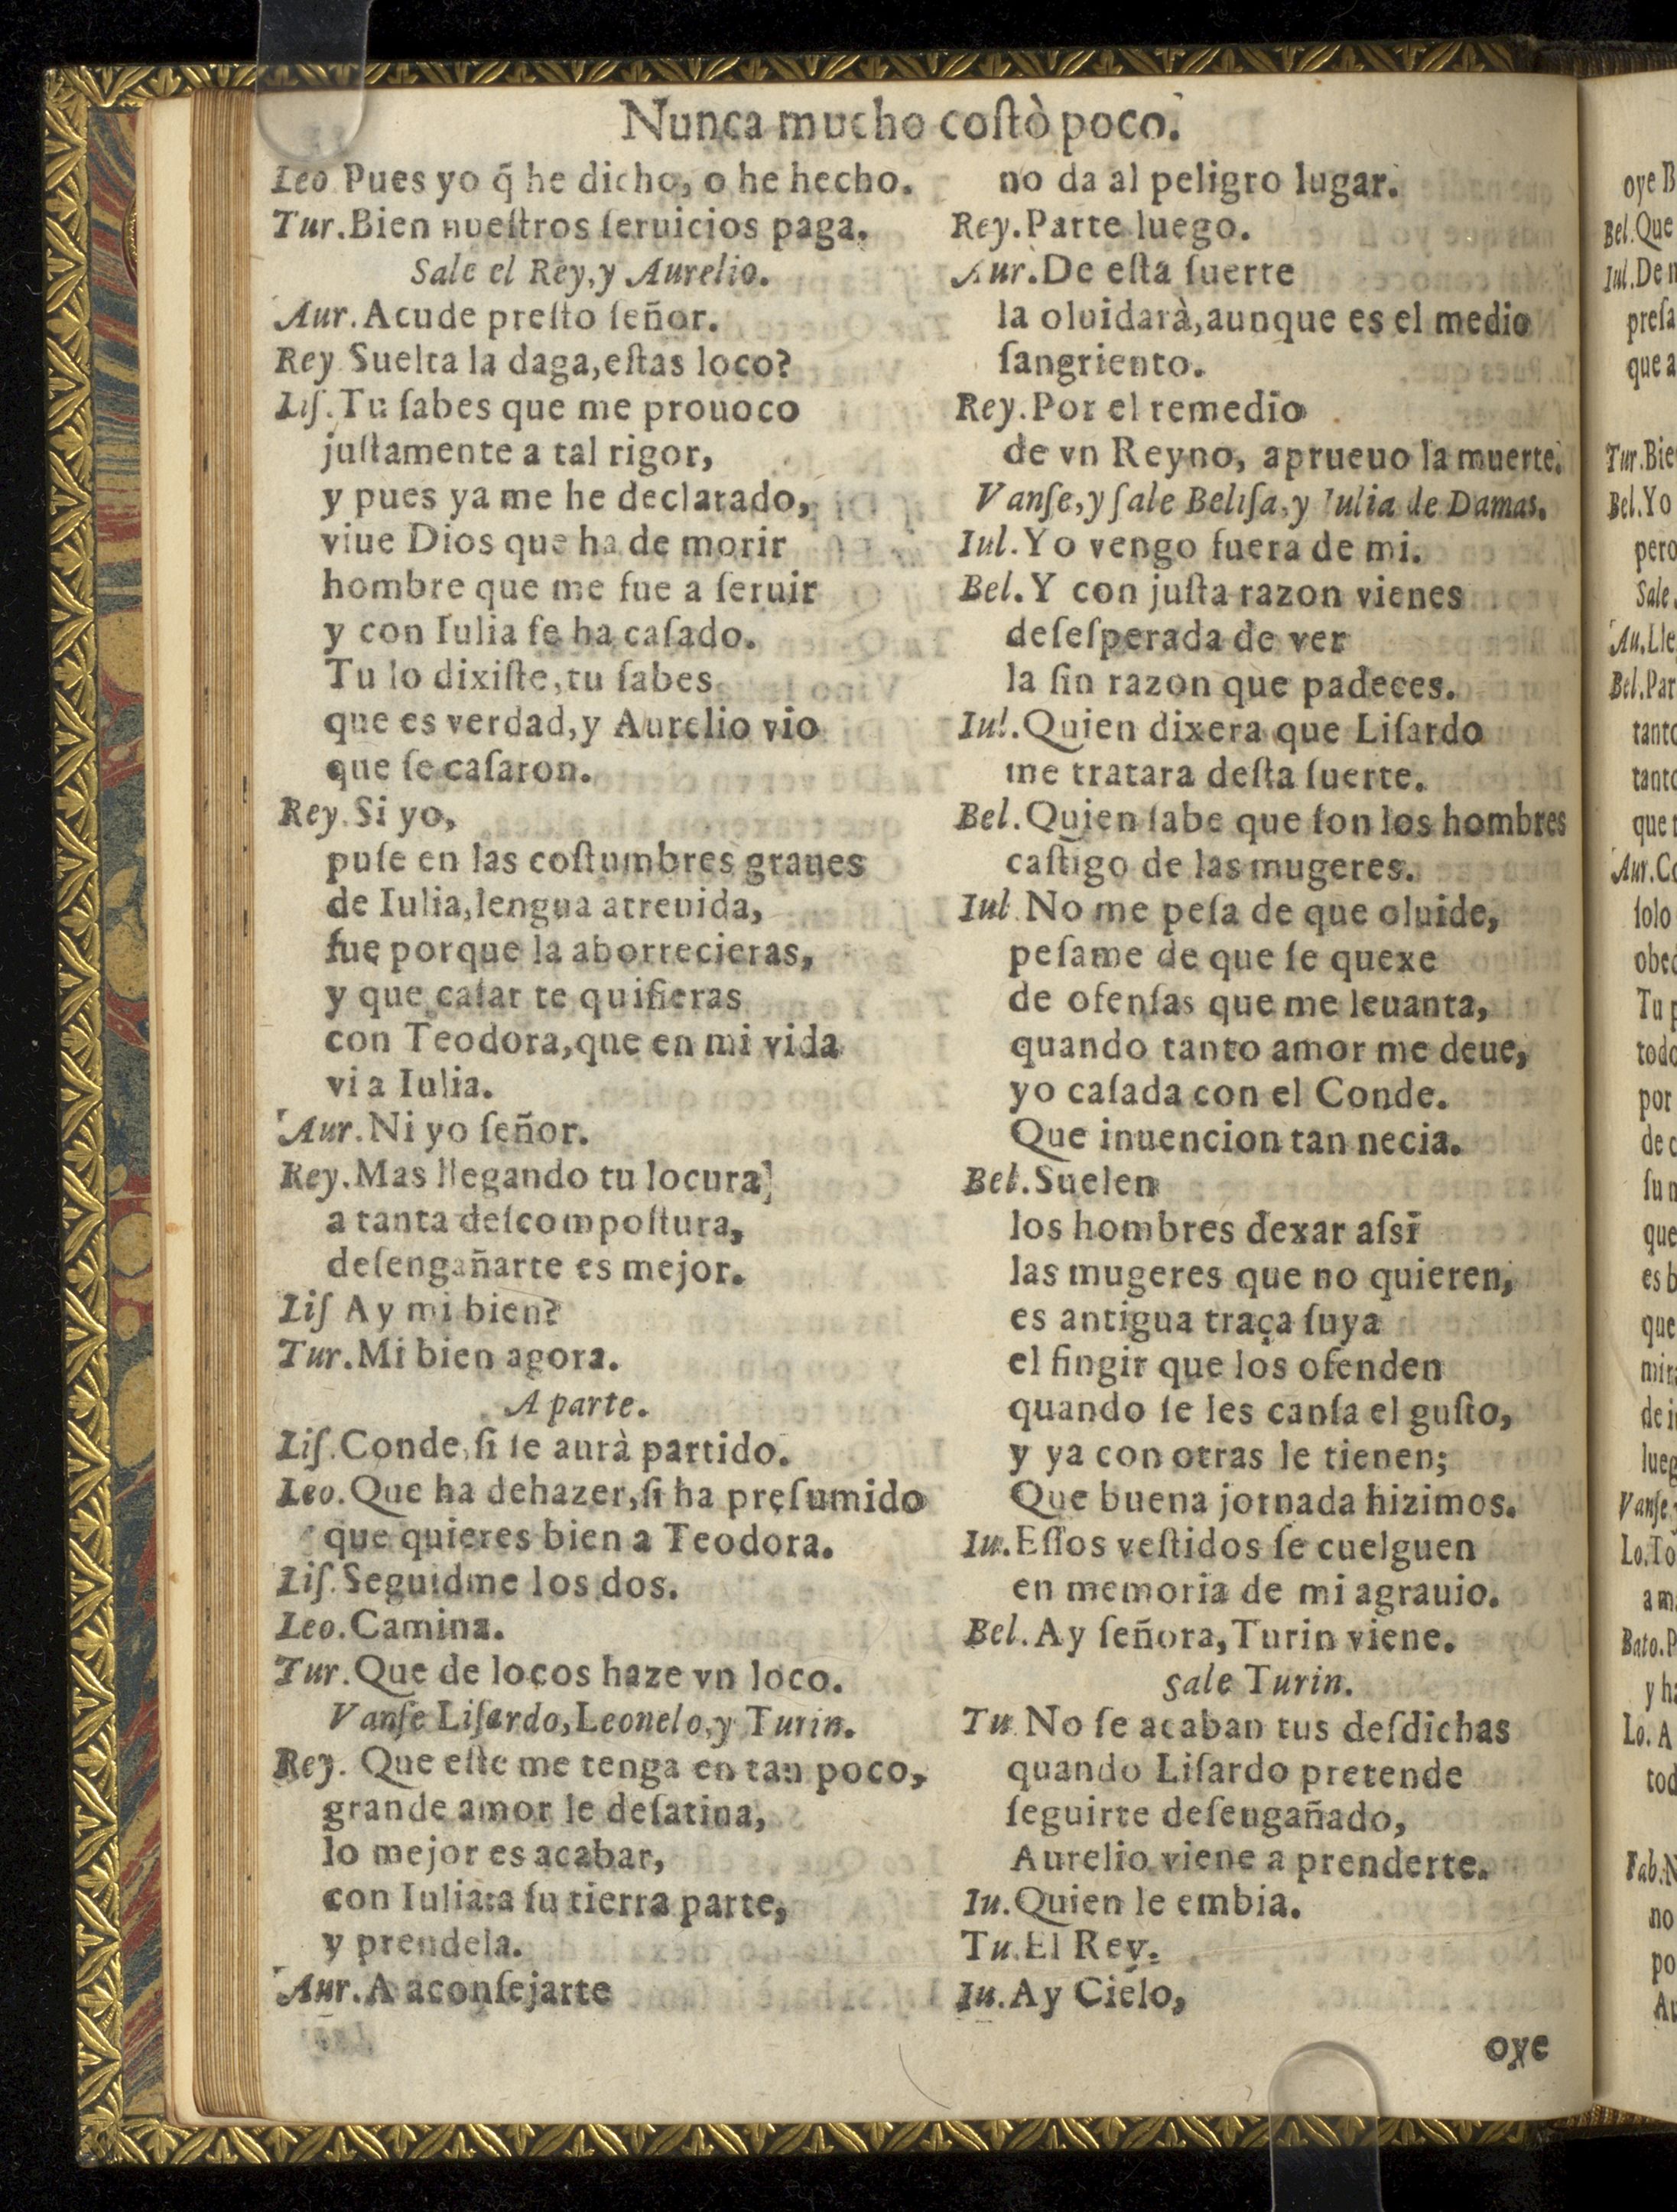 Nunca mucho coſtò poco.
Leo Pues yo q̃ he dicho, o he hecho.
Tur.Bien nueſtros ſeruicios paga.
Sale el Rey,y Aurelio.
Aur.Acude preſto ſeñor.
Rey Suelta la daga,eſtas loco?
Liſ.Tu ſabes que me prouoco
juſtamente a tal rigor,
y pues ya me he declarado,
viue Dios que ha de morir
hombre que me fue a ſeruir
y con Iulia ſe ha caſado.
Tu lo dixiſte,tu ſabes
que es verdad,y Aurelio vio
que ſe caſaron.
Rey.Si yo,
puſe en las coſtumbres graues
de Iulia,lengua atreuida,
fue porque la aborrecieras,
y que caſar te quiſieras
con Teodora,que en mi vida
vi a Iulia.
Aur.Ni yo ſeñor.
Rey.Mas llegando tu locura
a tanta deſcompoſtura,
deſengañarte es mejor.
Liſ Ay mi bien?
Tur.Mi bien agora.
A parte.
Liſ.Conde,ſi ſe aurà partido.
Leo.Que ha dehazer,ſi ha preſumido
que quieres bien a Teodora.
Liſ.Seguidme los dos.
Leo.Camina.
Tur.Que de locos haze vn loco.
Vanſe Liſardo,Leonelo,y Turin.
Rey. Que eſte me tenga en tan poco,
grande amor le deſatina,
lo mejor es acabar,
con Iulia:a ſu tierra parte,
y prendela.
Aur.A aconſejarte
no da al peligro lugar.
Rey.Parte luego.
Aur.De eſta ſuerte
la oluidarà,aunque es el medio
ſangriento.
Rey.Por el remedio
de vn Reyno, aprueuo la muerte.
Vanſe,y ſale Beliſa,y Iulia de Damas.
Iul.Yo vengo fuera de mi.
Bel.Y con juſta razon vienes
deſeſperada de ver
la ſin razon que padeces.
Iul.Quien dixera que Liſardo
me tratara deſta ſuerte.
Bel.Quien ſabe que ſon los hombres
caſtigo de las mugeres.
Iul No me peſa de que oluide,
peſame de que ſe quexe
de ofenſas que me leuanta,
quando tanto amor me deue,
yo caſada con el Conde.
Que inuencion tan necia.
Bel.Suelen
los hombres dexar aſsi
las mugeres que no quieren,
es antigua traça ſuya
el fingir que los ofenden
quando ſe les canſa el guſto,
y ya con otras le tienen;
Que buena jornada hizimos.
Iu.Eſſos veſtidos ſe cuelguen
en memoria de mi agrauio.
Bel.Ay ſeñora,Turin viene.
Sale Turin.
Tu.No ſe acaban tus deſdichas
quando Liſardo pretende
ſeguirte deſengañado,
Aurelio viene a prenderte.
Iu.Quien le embia.
Tu.El Rey.
Iu.Ay Cielo,
oye
oye B
Bel.Que
Iul.De
preſa
que a
Tur.Bie
Bel.Yo
pero
Sale
Au.Lle
Bel.Par
tanto
tanto
que
Aur.
ſolo
Tu
por
que
es b
que
de
Vanſe
Lo.To
Bato.P
y h
Lo. A
tod
Fab.
no
po